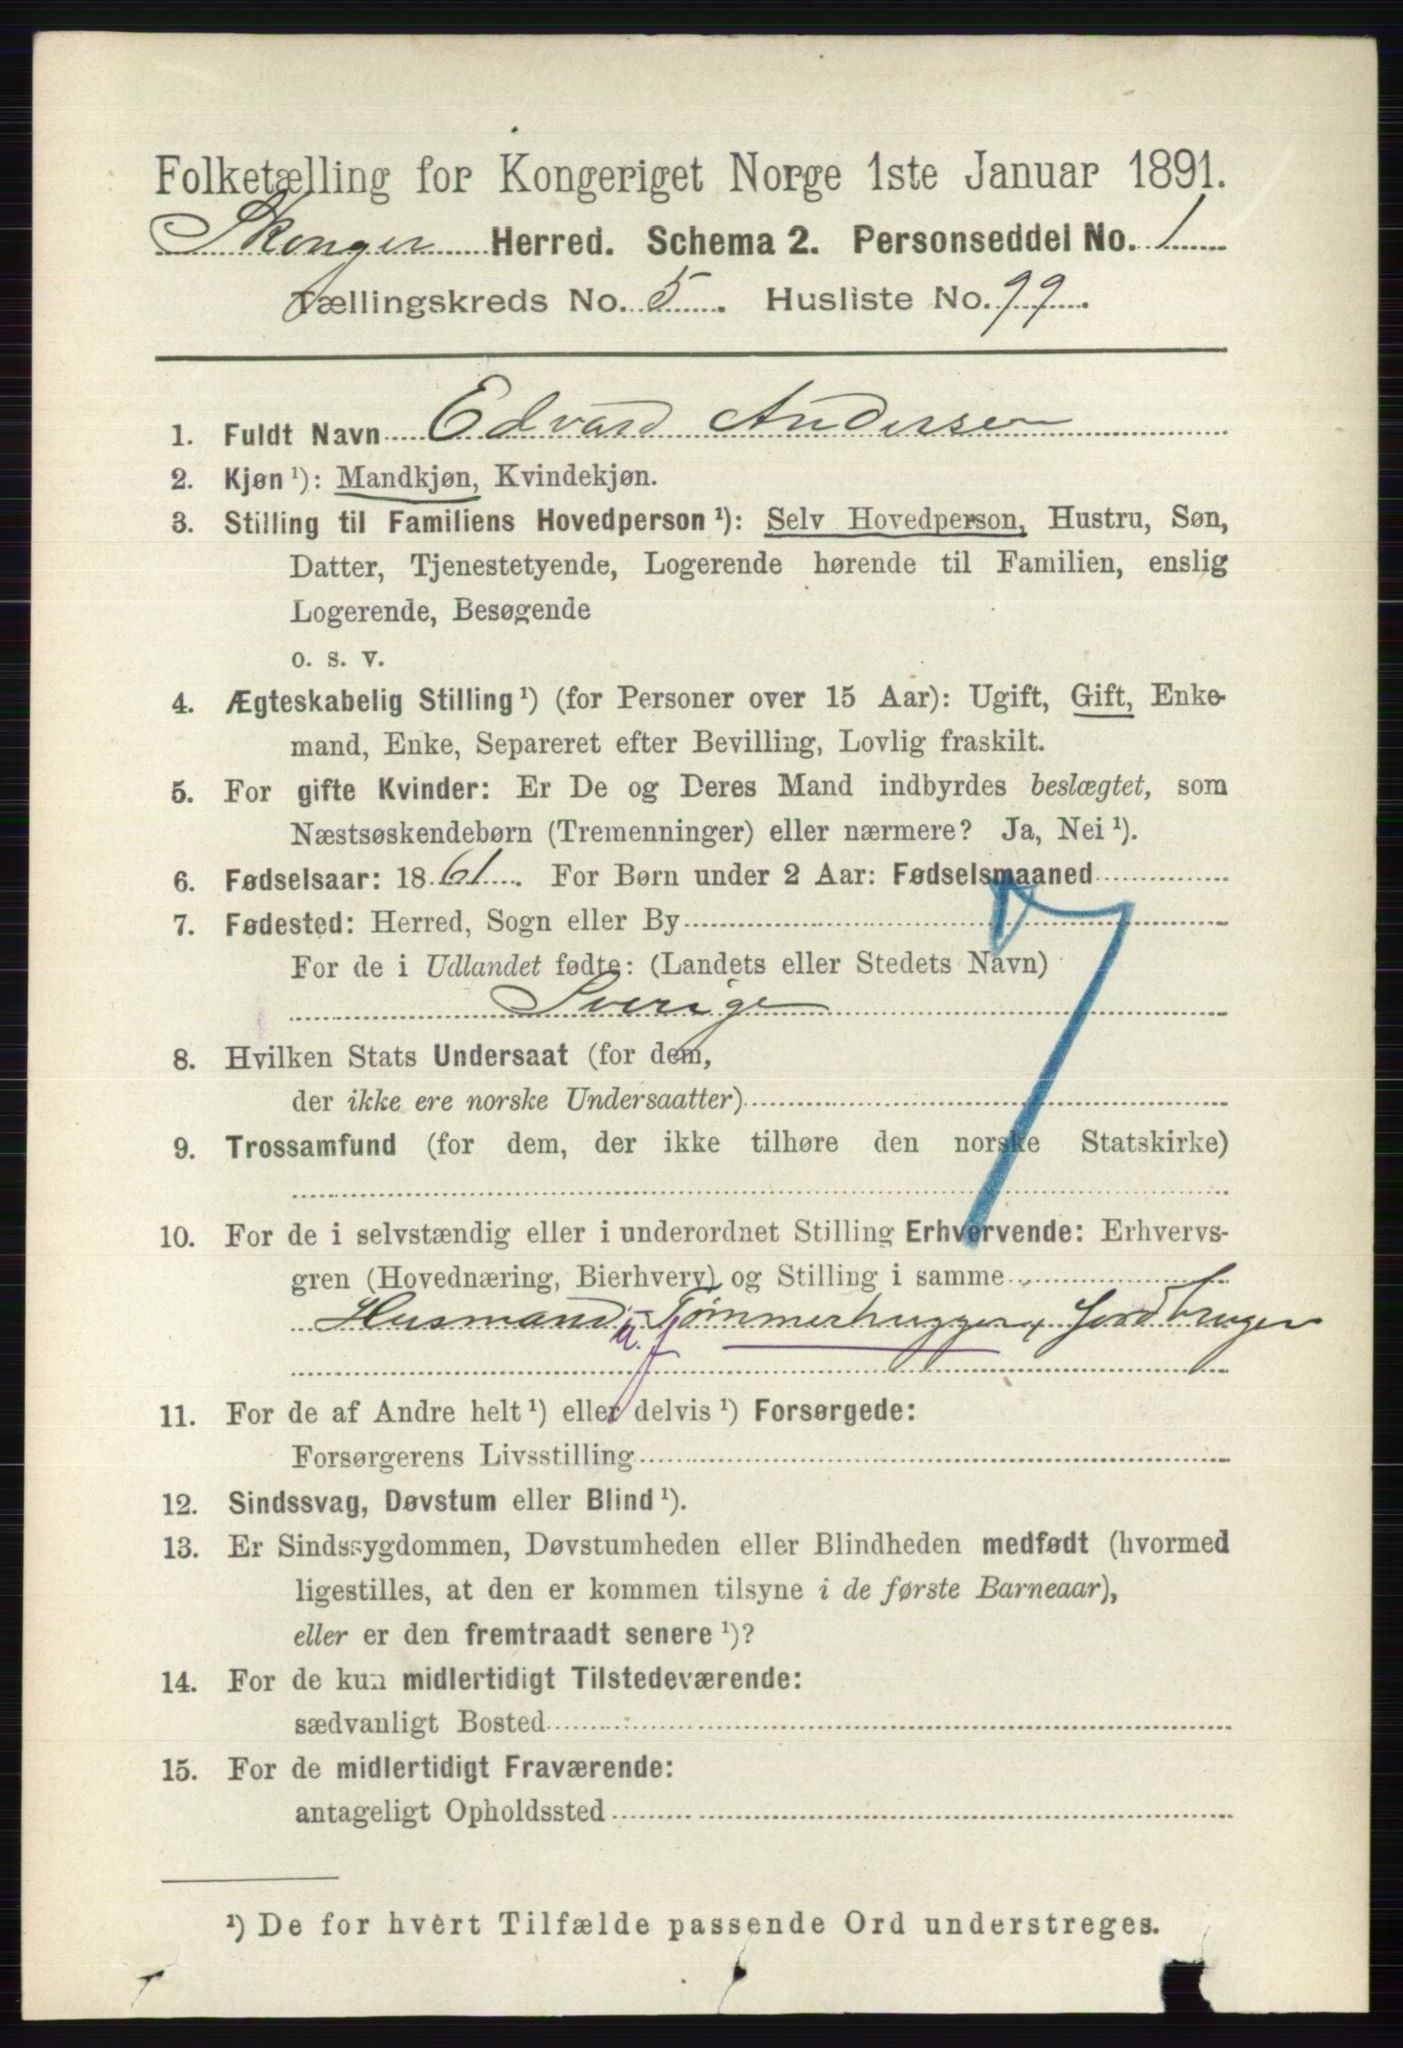 Folketælling for Kongeriget Norge 1ste Januar 1891.
Skoger Herred. Schema 2. Personseddel No. 1
Tællingskreds No. 5. Husliste No. 99.
1. Fuldt Navn Edvard Andersen
2. Kjøn ¹): Mandkjøn, Kvindekjøn.
3. Stilling til Familiens Hovedperson ¹): Selv Hovedperson, Hustru, Søn,
Datter, Tjenestetyende, Logerende hørende til Familien, enslig
Logerende, Besøgende
o. s. v.
4. Ægteskabelig Stilling ¹) (for Personer over 15 Aar): Ugift, Gift, Enke-
mand, Enke, Separeret efter Bevilling, Lovlig fraskilt.
5. For gifte Kvinder: Er De og Deres Mand indbyrdes beslægtet, som
Næstsøskendebørn (Tremenninger) eller nærmere? Ja, Nei ¹).
6. Fødselsaar: 1861. For Børn under 2 Aar: Fødselsmaaned
7. Fødested: Herred, Sogn eller By
For de i Udlandet fødte: (Landets eller Stedets Navn)
Sverige
8. Hvilken Stats Undersaat (for dem,
der ikke ere norske Undersaatter)
9. Trossamfund (for dem, der ikke tilhøre den norske Statskirke)
10. For de i selvstændig eller i underordnet Stilling Erhvervende: Erhvervs-
gren (Hovednæring, Bierhverv) og Stilling i samme
Husmand, Tømmerhugger, Jordbruger
11. For de af Andre helt ¹) eller delvis ¹) Forsørgede:
Forsørgerens Livsstilling
12. Sindssvag, Døvstum eller Blind ¹).
13. Er Sindssygdommen, Døvstumheden eller Blindheden medfødt (hvormed
ligestilles, at den er kommen tilsyne i de første Barneaar),
eller er den fremtraadt senere ¹)?
14. For de kun midlertidigt Tilstedeværende:
sædvanligt Bosted
15. For de midlertidigt Fraværende:
antageligt Opholdssted
¹) De for hvert Tilfælde passende Ord understreges.